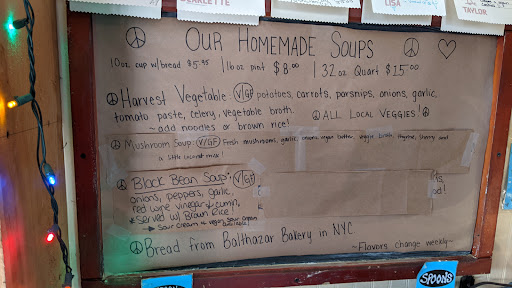 SCARLETTE
LISA
TAYLOR
OUR HOMEMADE SOUPS
10oz. cup w/bread $5.95 16oz pint $8.00 32oz Quart $15.00
Harvest Vegetable V/GF potatoes, carrots, parsnips, onions, garlic,
tomato paste, celery, vegetable broth.
~add noodles or brown rice! ALL LOCAL VEGGIES!
Mushroom Soup: V/GF Fresh mushrooms, garlic, onions, vegan butter, veggie broth, thyme, and
a little coconut milk!
Black Bean Soup: V/GF
onions, peppers, garlic,
red wine vinegar & cumin,
*Served w/ Brown Rice!
→ Sour Cream & vegan Sour Cream
available!
Bread from Balthazar Bakery in NYC
~Flavors change weekly~
SPOONS
SPOONS